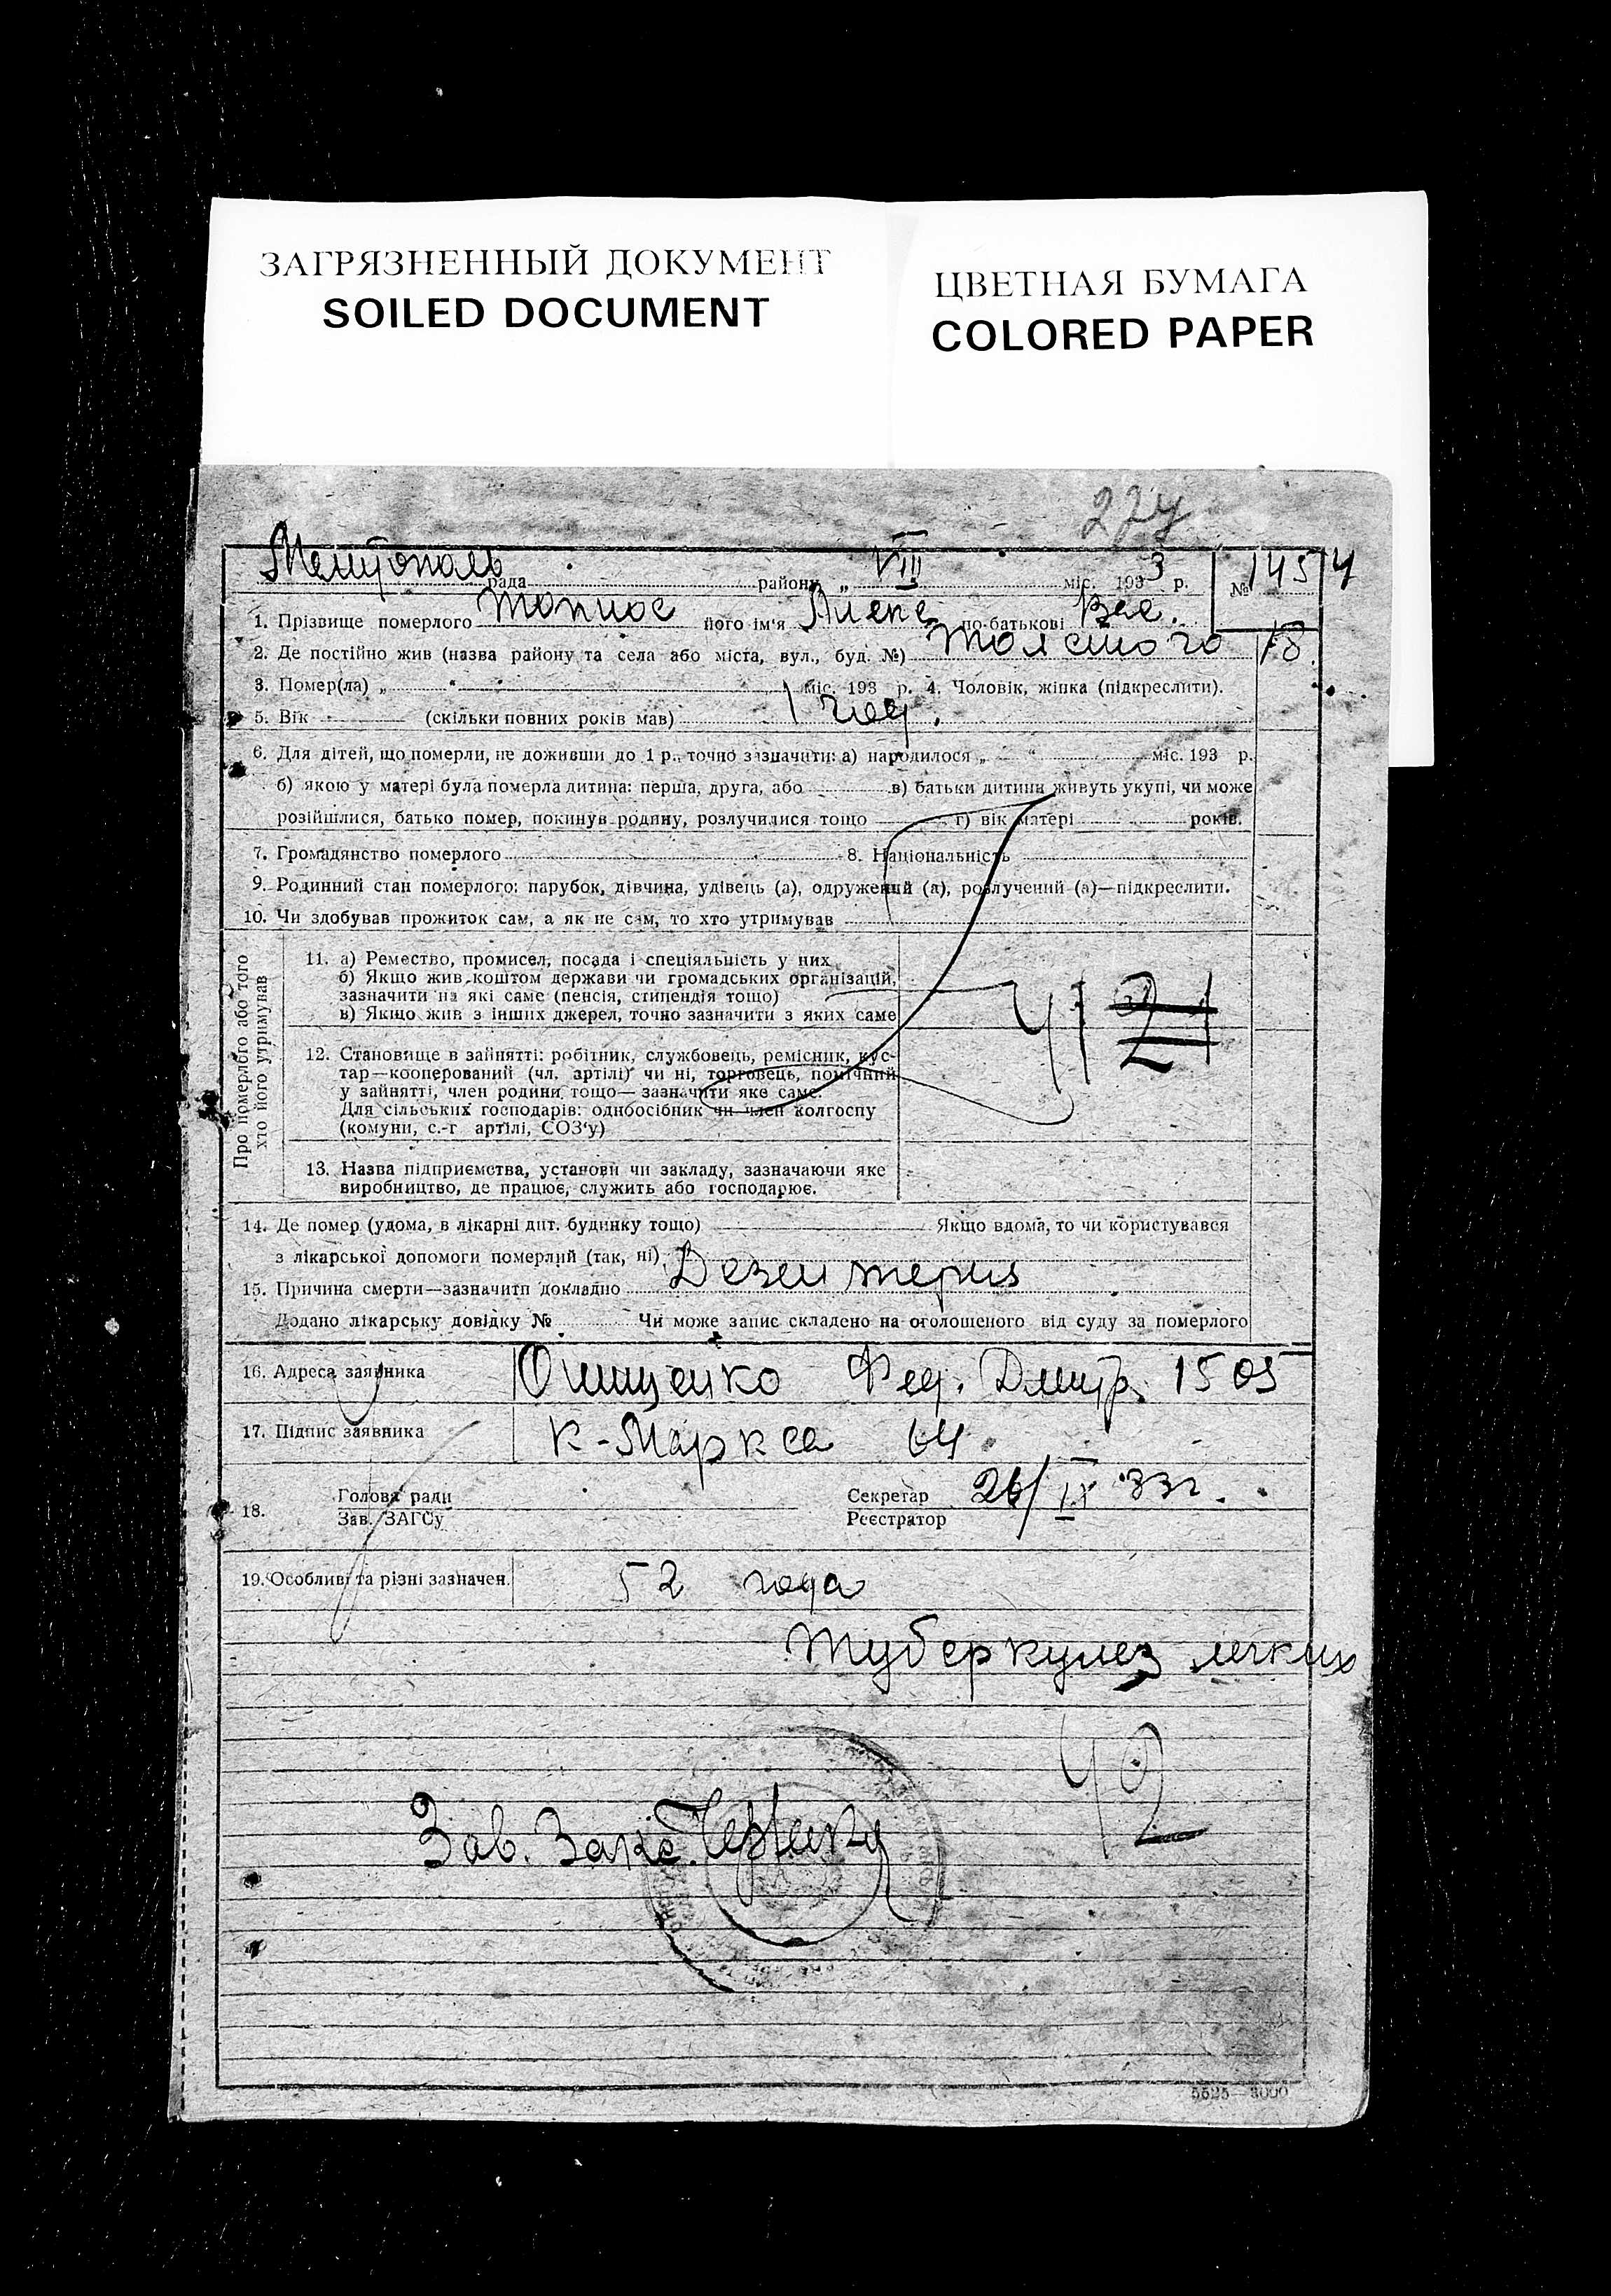 ЗАГРЯЗНЕННЫЙ ДОКУМЕНТ
SOILED DOCUMENT
ЦВЕТНАЯ БУМАГА
COLORED PAPER
274
Мелитополь рада району „ VIII міс. 1933 р. № 1454
1. Прізвище померлого його ім'я Алекс по-батькові Вас.
2. Де постійно жив (назва району та села або міста, вул., буд. №) Толстого 18.
3. Помер(ла) „ “ міс. 193 р. 4. Чоловік, жінка (підкреслити).
5. Вік (скільки повних років мав) 1 год.
6. Для дітей, що померли, не доживши до 1 р., точно зазначити: а) народилося „ “ міс. 193 р.
б) якою у матері була померла дитина: перша, друга, або в) батьки дитини живуть укупі, чи може
розійшлися, батько помер, покинув родину, розлучилися тощо г) вік матері років.
7. Громадянство померлого 8. Національність
9. Родинний стан померлого: парубок, дівчина, удівець (а), одружений (а), розлучений (а)—підкреслити.
10. Чи здобував прожиток сам, а як не сам, то хто утримував
Про померлого або того
хто його утримував
11. а) Ремество, промисел, посада і спеціяльність у них
б) Якщо жив коштом держави чи громадських організацій,
зазначити на які саме (пенсія, стипендія тощо)
в) Якщо жив з інших джерел, точно зазначити з яких саме
41 21
12. Становище в зайнятті: робітник, службовець, ремісник, кус-
тар—кооперований (чл. артілі) чи ні, торговець, помічний
у зайнятті, член родини тощо—зазначити яке саме.
Для сільських господарів: одноосібник чи член колгоспу
(комуни, с.-г артілі, СОЗ'у)
13. Назва підприємства, установи чи закладу, зазначаючи яке
виробництво, де працює, служить або господарює.
14. Де помер (удома, в лікарні дит. будинку тощо) Якщо вдома, то чи користувався
з лікарської допомоги померлий (так, ні)
15. Причина смерти—зазначити докладно Дезентерия
Додано лікарську довідку № Чи може запис складено на оголошеного від суду за померлого
16. Адреса заявника Онищенко Фед. Дмитр. 1505
17. Підпис заявника К-Маркса 64
18. Голова ради
Зав. ЗАГСу
Секретар
Реєстратор
26/IX 33г.
19. Особливі та різні зазначен. 52 года
Туберкулез легких
42
Зав. Загс
5525—3000